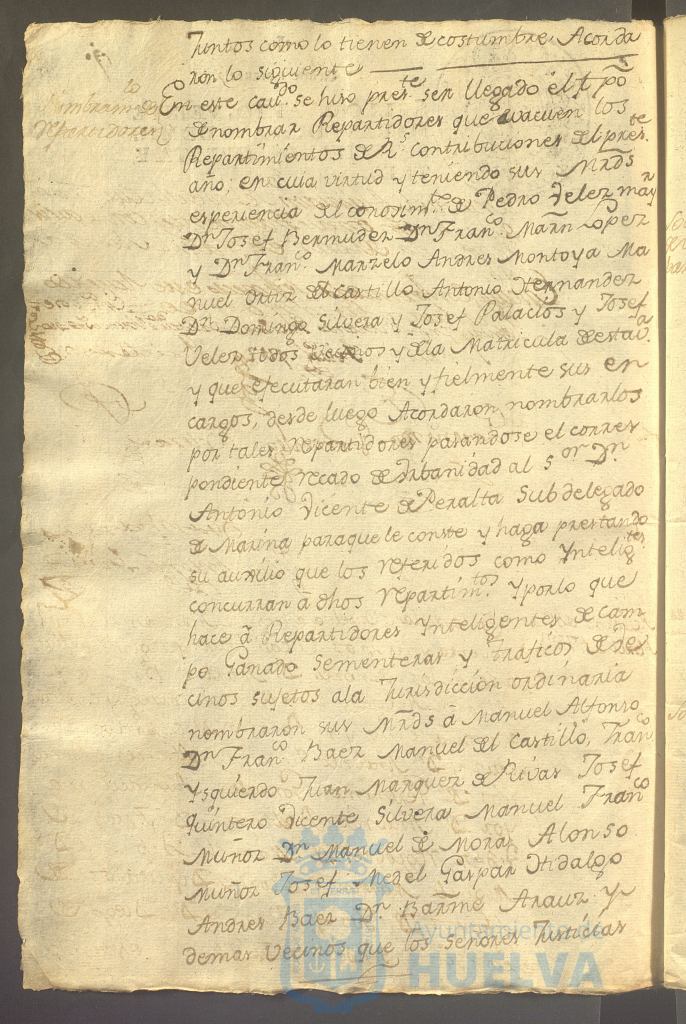 Juntos como lo tienen de costumbre Acorda
ron lo siguiente
Nombram.to de
repartidores
En este cav.do se hiso pres.te ser llegado el tpō
de nombrar Repartidores que evacuen los
Repartimientos de R.s contribuciones del pres.te
año; en cuia virtud y teniendo sus Mrds
esperiencia del conosim.to de Pedro Velez mayr
Dn Josef Bermudez Dn Fran.co Marñ Lopez
y Dn Fran.co Marzelo Andres Montoya Ma
nuel Ortiz del Castillo Antonio Hernandez
Dn Domingo Silvera y Josef Palacios y Josef
Velez todos vecinos y de la Matricula de esta v.a
y que ejecutaran bien y fielmente sus en
cargos, desde luego Acordaron nombrarlos
por tales repartidores pasandose el corres
pondiente recado de Urbanidad al Sor Dn
Antonio Vicente de Peralta Subdelegado
de Marina paraque le conste y haga prestando
su auxilio que los referidos como Ynteligtes
concurran à dhos repartim.tos Y porlo que
hace à Repartidores Ynteligentes de cam
po Ganado Sementeras y Traficos de Ve
cinos sujetos ala Jurisdiccion ordinaria
nombraron sus Mrds à Manuel Alfonso
Dn Fran.co Baez Manuel del Castillo, Fran.co
Ysquierdo Juan Marquez de Rivas Josef
Quintero Vicente Silvera Manuel Fran.co
Muñoz Dn Manuel de Mora, Alonso
Muñoz Josef Medel Gaspar Hidalgo
Andres Baez Dn Barme Arauz y
demas vecinos que los Señores Justicias
Ayuntamiento de
HUELVA